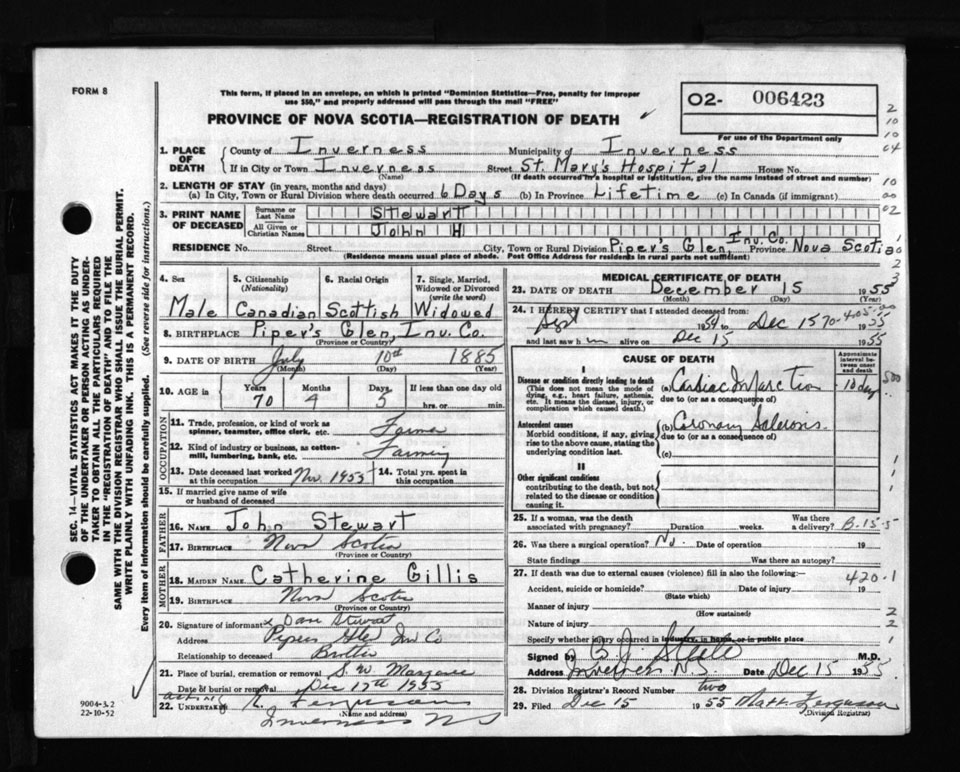 FORM 8
This form, if placed in an envelope, on which is printed "Dominion Statistics—Free, penalty for improper
use $50," and properly addressed will pass through the mail "FREE"
PROVINCE OF NOVA SCOTIA—REGISTRATION OF DEATH
02- 006423
For use of the Department only
1. PLACE OF DEATH
County of Inverness Municipality of Inverness
If in City or Town Inverness Street St. Mary's Hospital House No.
(Name) (If death occurred in a hospital or institution, give the name instead of street and number)
2. LENGTH OF STAY (in years, months and days)
(a) In City, Town or Rural Division where death occurred 6 Days (b) In Province Lifetime (c) In Canada (if immigrant)
3. PRINT NAME OF DECEASED
Surname or Last Name Stewart
All Given or Christian Names John H
RESIDENCE No. Street City, Town or Rural Division Piper's Glen, Inv. Co. Province Nova Scotia
(Residence means usual place of abode. Post Office Address for residents in rural parts not sufficient)
4. Sex Male
5. Citizenship (Nationality) Canadian
6. Racial Origin Scottish
7. Single, Married, Widowed or Divorced (write the word) Widowed
8. BIRTHPLACE Piper's Glen, Inv. Co.
(Province or Country)
9. DATE OF BIRTH July 10th 1885
(Month) (Day) (Year)
10. AGE in Years 70 Months 4 Days 5 If less than one day old
hrs. or min.
OCCUPATION
11. Trade, profession, or kind of work as
spinner, teamster, office clerk, etc. Farmer
12. Kind of industry or business, as cotten-
mill, lumbering, bank, etc. Farming
13. Date deceased last worked
at this occupation Nov. 1955
14. Total yrs. spent in
this occupation
15. If married give name of wife
or husband of deceased
FATHER
16. NAME John Stewart
17. BIRTHPLACE Nova Scotia
(Province or Country)
MOTHER
18. MAIDEN NAME Catherine Gillis
19. BIRTHPLACE Nova Scotia
(Province or Country)
20. Signature of informant x Dan Stewart
Address Pipers Glen Inv Co
Relationship to deceased Brother
21. Place of burial, cremation or removal S. W. Margaree
Date of burial or removal Dec 17th 1955
22. UNDERTAKER acting Ferguson
(Name and address)
Inverness N S
9004-3.2
22-10-52
MEDICAL CERTIFICATE OF DEATH
23. DATE OF DEATH December 15 1955
(Month) (Day) (Year)
24. I HEREBY CERTIFY that I attended deceased from:
Sept to Dec 15 1955
and last saw him alive on Dec 15 1955
CAUSE OF DEATH
Approximate interval between onset and death
I
Disease or condition directly leading to death
(This does not mean the mode of
dying, e.g., heart failure, asthenia,
etc. It means the disease, injury, or
complication which caused death.)
(a) Cardiac Infarction 10 days
due to (or as a consequence of)
Antecedent causes
Morbid conditions, if any, giving
rise to the above cause, stating the
underlying condition last.
(b) Coronary Sclerosis.
due to (or as a consequence of)
(c)
II
Other significant conditions
contributing to the death, but not
related to the disease or condition
causing it.
25. If a woman, was the death
associated with pregnancy? Duration weeks. Was there
a delivery?
B-15-5
26. Was there a surgical operation? No. Date of operation 19
State findings Was there an autopsy?
27. If death was due to external causes (violence) fill in also the following:—
420-1
Accident, suicide or homicide? Date of injury 19
(State which)
Manner of injury
(How sustained)
Nature of injury
Specify whether injury occurred in industry, in home, or in public place
Signed by M.D.
Address Inverness N.S. Date Dec 15 1955
28. Division Registrar's Record Number two
29. Filed Dec 15 1955 Matt. Ferguson
(Division Registrar)
SEC. 14—VITAL STATISTICS ACT MAKES IT THE DUTY
OF THE UNDERTAKER OR PERSON ACTING AS UNDER-
TAKER TO OBTAIN ALL THE PARTICULARS REQUIRED
IN THE "REGISTRATION OF DEATH" AND TO FILE THE
SAME WITH THE DIVISION REGISTRAR WHO SHALL ISSUE THE BURIAL PERMIT.
WRITE PLAINLY WITH UNFADING INK. THIS IS A PERMANENT RECORD.
Every item of information should be carefully supplied. (See reverse side for instructions.)